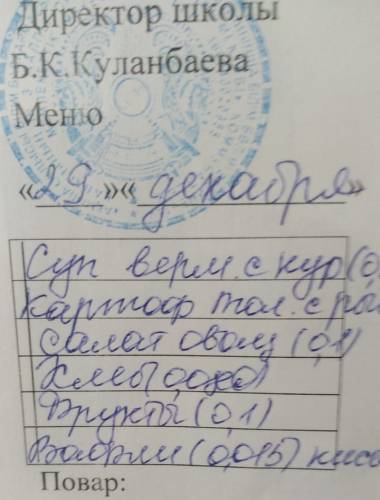 Директор школы
Б.К.Куланбаева
Меню
«29»«декабря»
Суп верм. с кур (0,
картоф тол. с ры
Салат овощ (0,1)
Хлеб
Фрукты (0,1)
Вафли (0,015) кис
Повар: